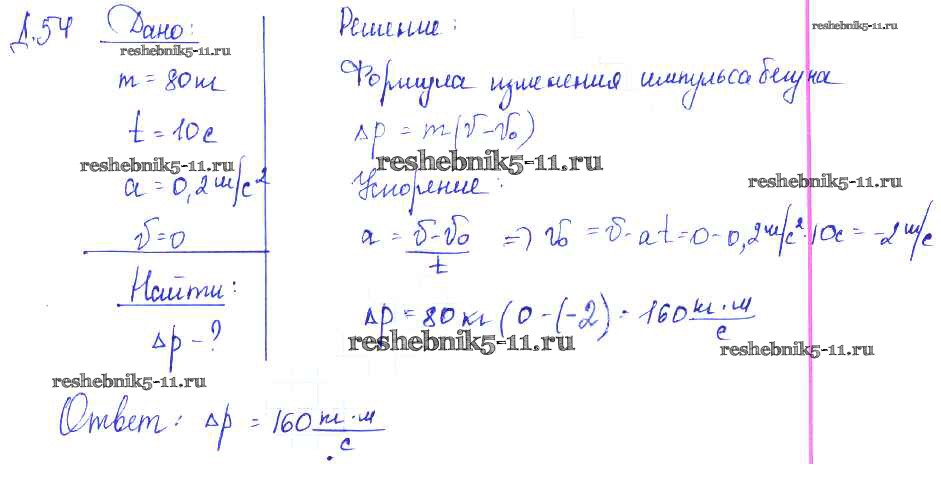 Д.54 Дано:
reshebnik5-11.ru
m = 80кг
t = 10с
reshebnik5-11.ru
a = 0,2м/с²
v = 0
Найти:
Δp - ?
reshebnik5-11.ru
Решение:
reshebnik5-11.ru
Формула изменения импульса бегуна
Δp = m(v-v₀)
reshebnik5-11.ru
Ускорение:
reshebnik5-11.ru
a = v-v₀/t => v₀ = v-at = 0-0,2м/с²·10с = -2м/с
Δp = 80кг(0-(-2) = 160 кг·м/с
reshebnik5-11.ru
reshebnik5-11.ru
Ответ: Δp = 160 кг·м/с.